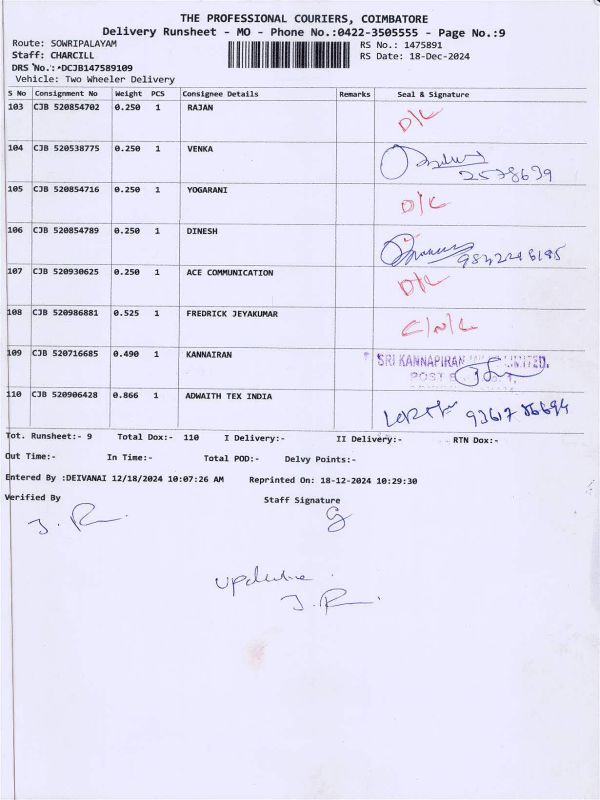 THE PROFESSIONAL COURIERS, COIMBATORE
Delivery Runsheet - MO - Phone No.:0422-3505555 - Page No.:9
Route: SOWRIPALAYAM RS No.: 1475891
Staff: CHARCILL RS Date: 18-Dec-2024
DRS No.: DCJB147589109
Vehicle: Two Wheeler Delivery
S No Consignment No Weight PCS Consignee Details Remarks Seal & Signature
103 CJB 520854702 0.250 1 RAJAN D/L
104 CJB 520538775 0.250 1 VENKA
105 CJB 520854716 0.250 1 YOGARANI D/L
106 CJB 520854789 0.250 1 DINESH
107 CJB 520930625 0.250 1 ACE COMMUNICATION D/L
108 CJB 520986881 0.525 1 FREDRICK JEYAKUMAR C/N/L
109 CJB 520716685 0.490 1 KANNAIRAN SRI KANNAPIRAN LIMITED.
POST
110 CJB 520906428 0.866 1 ADWAITH TEX INDIA
Tot. Runsheet:- 9 Total Dox:- 110 I Delivery:- II Delivery:- RTN Dox:-
Out Time:- In Time:- Total POD:- Delvy Points:-
Entered By :DEIVANAI 12/18/2024 10:07:26 AM Reprinted On: 18-12-2024 10:29:30
Verified By Staff Signature